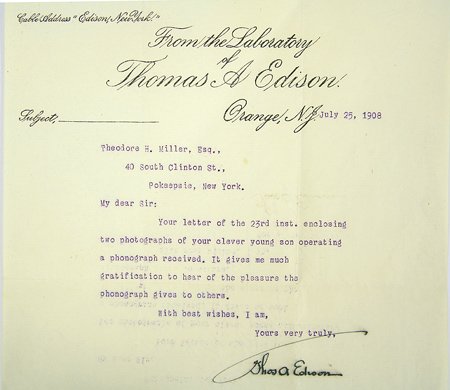 Cable Address "Edison, New York."
From the Laboratory
of
Thomas A Edison.
Orange, N.J. July 25, 1908
Subject,
Theodore H. Miller, Esq.,
40 South Clinton St.,
Pokeepsie, New York.
My dear Sir:
Your letter of the 23rd inst. enclosing
two photographs of your clever young son operating
a phonograph received. It gives me much
gratification to hear of the pleasure the
phonograph gives to others.
With best wishes, I am,
Yours very truly,
Thos A Edison